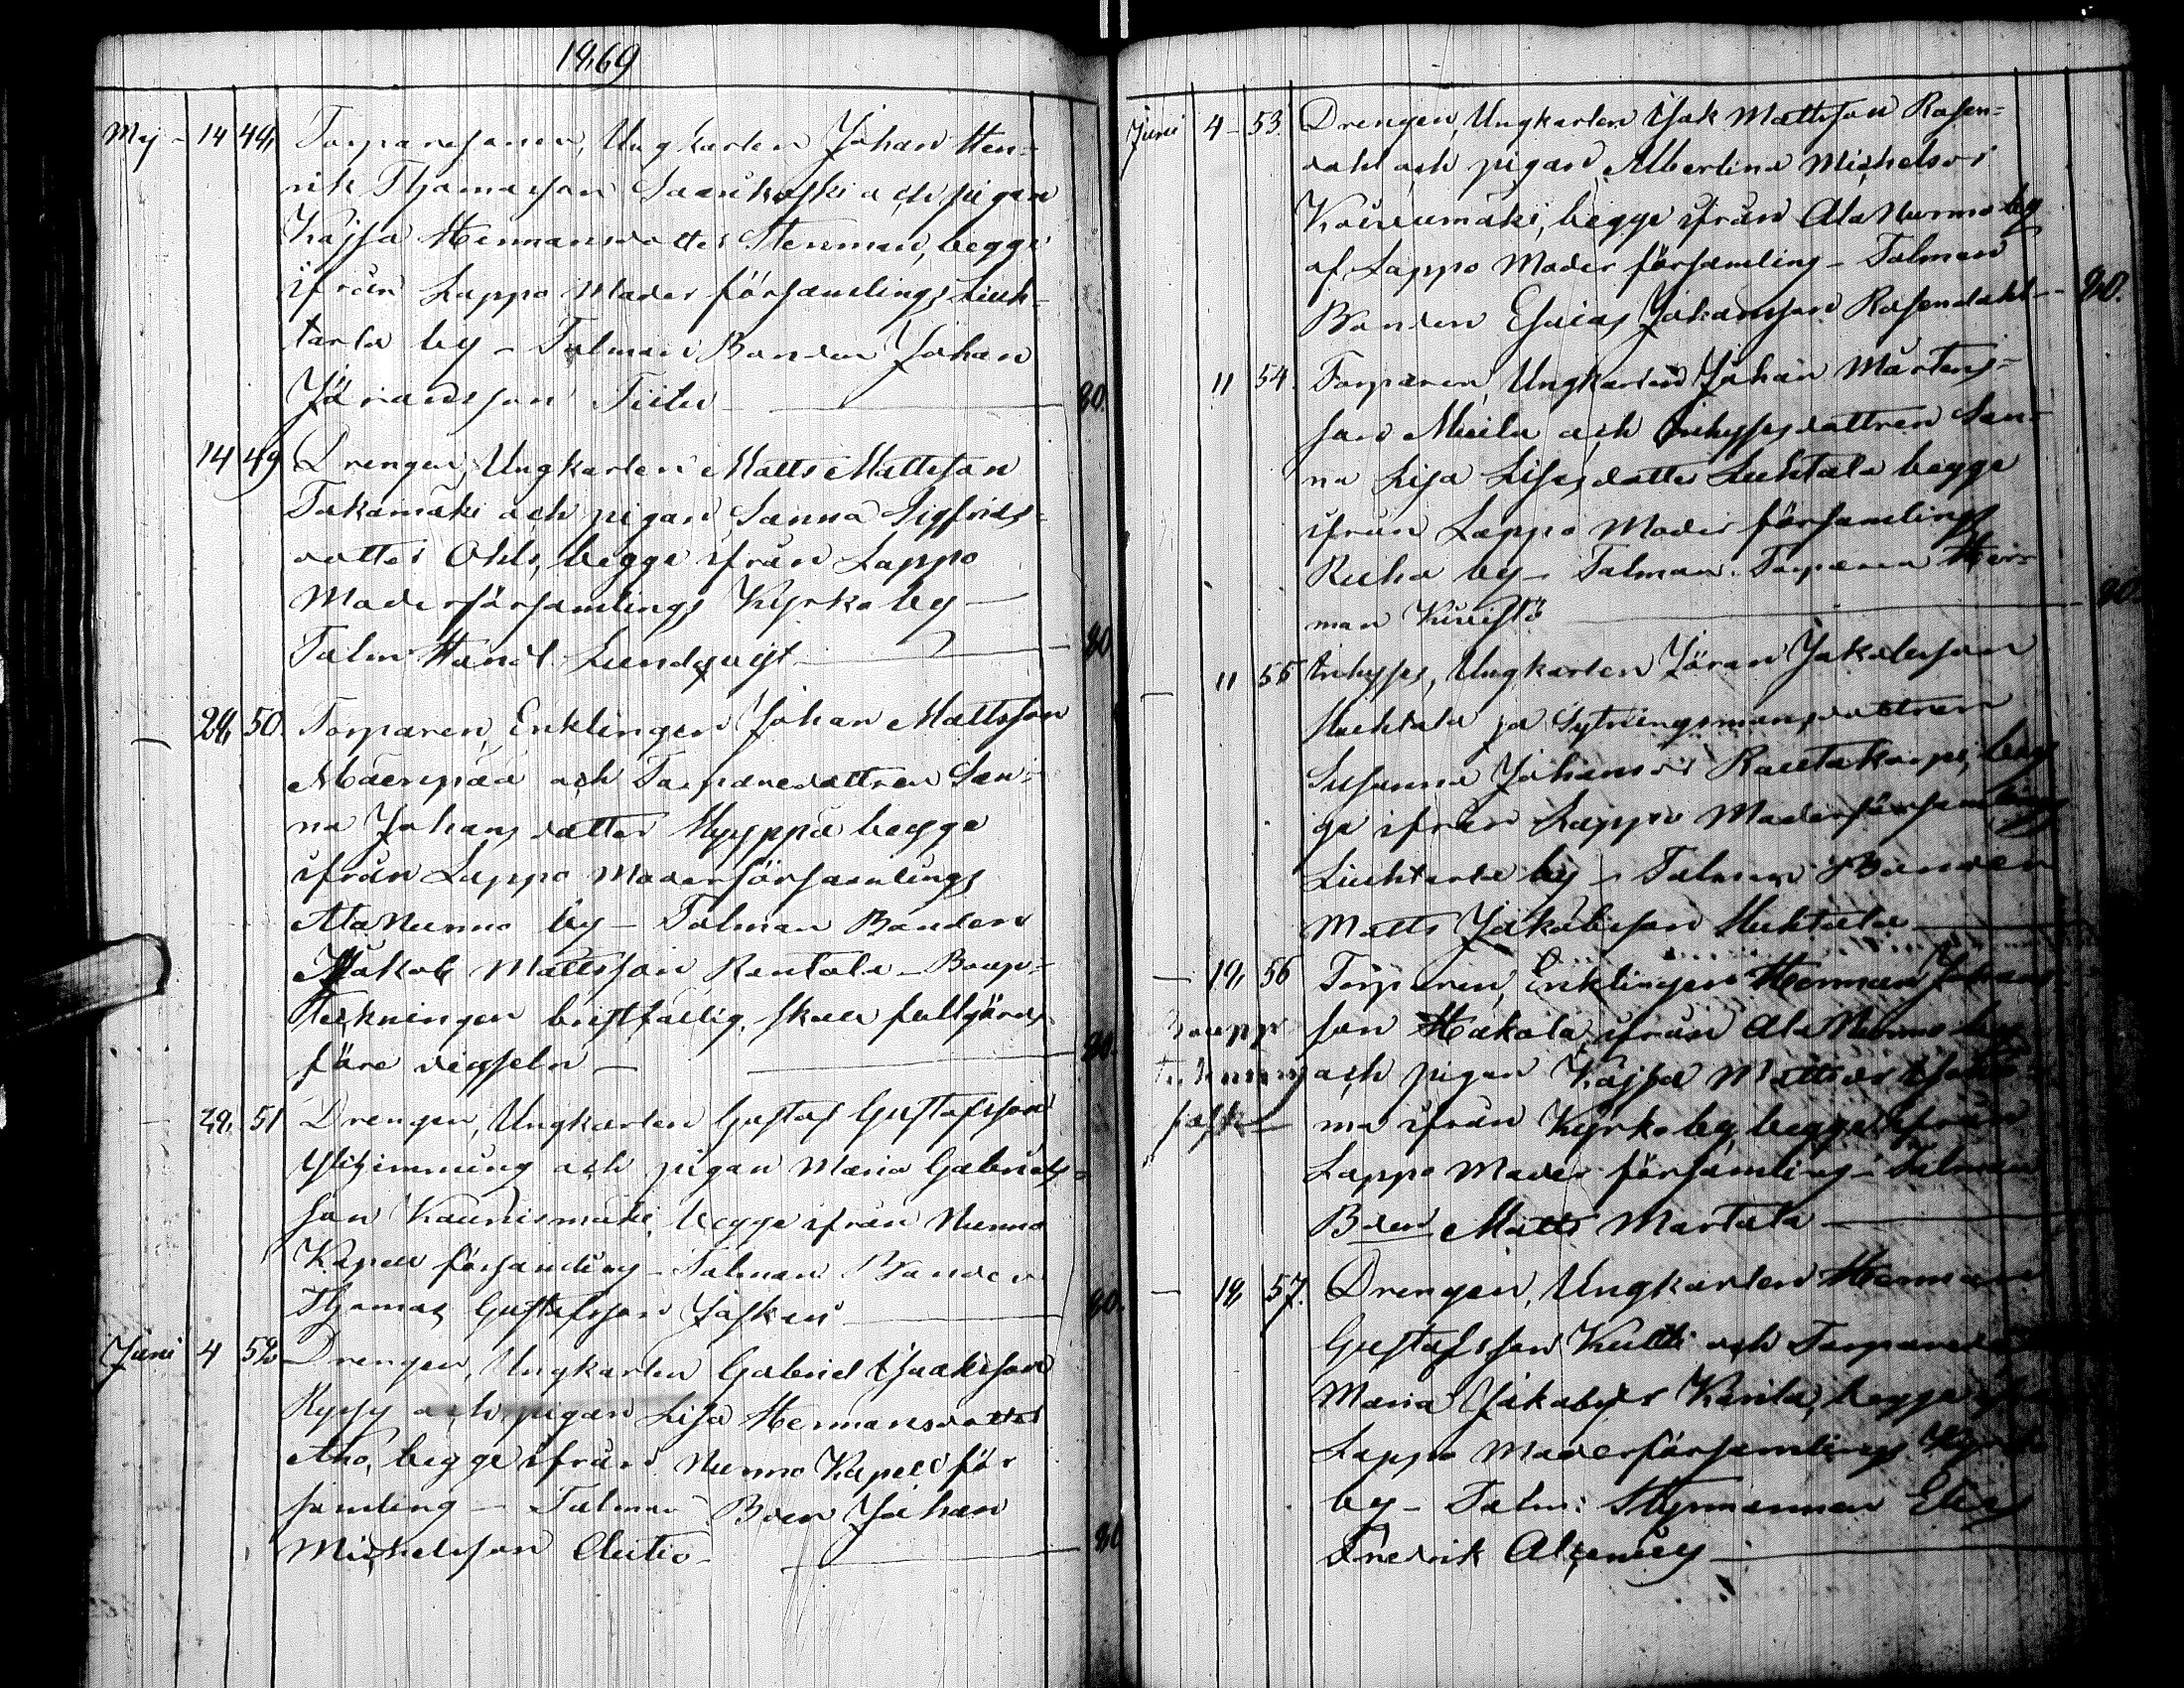 1869
Maj - 14 44, Torparesonen, Ungkarlen Johan Hen-
rik Thomasson Saarikoski och pigan
Kajsa Hermansdotter Stenman, begge
ifrån Lappo Moder församlings Liuh-
tarla by - Talman Bonden Johan
Jöransson Tiitu - 80.
14 49 Drengen, Ungkarlen Matts Mattsson
Takamäki och pigan Sanna Sigfrids-
dotter Ohls, begge ifrån Lappo
Moderförsamlings Kyrkoby -
Talm: Handl. Lundqvist - 80
28, 50. Torparen, Enklingen Johan Mattsson
Mäenpää och Torparedottren San-
na Johansdotter Hyyppä begge
ifrån Lappo Moderförsamlings
Ala Nurmo by - Talman Bonden
Jakob Mattsson Rentola - Koop-
teckningen bristfällig, skall fullgöras
före vigseln - 80.
29. 51 Drengen, Ungkarlen Gustaf Gustafsson
och pigan Maria Gabriels-
son Kaunismäki begge ifrån Nurmo
Kapell församling - Talman Bonden
Thomas Gustafsson Jåskari - 80.
Juni 4 52 Drengen, Ungkarlen Gabriel Isaaksson
och pigan Lisa Hermansdotter
Aho, begge ifrån Nurmo Kapell för
samling - Talman Bden Johan
Michelsson Autio - 80
Juni 4 - 53. Drengen, Ungkarlen Isak Mattsson Rosen-
dahl och pigan Albertina Michelsdr
Koivumäki, begge ifrån Ala Nurmo by
af Lappo Moder församling - Talman
Bonden Esaias Johansson Rosendahl - 80.
11 54. Torparen, Ungkarlen Johan Mårtens-
son Meila och Inhysesdottren San-
na Lisa Lisasdotter Luhtala begge
ifrån Lappo Moder församlings
Ruha by - Talman: Torparen Her-
man Kivistö - 80.
- 11 55 Inhyses, Ungkarlen Jöran Jakobsson
Huhtala ja Sytningsmansdottren
Susanna Johansdr Rautakorpi, beg
ge ifrån Lappo Moderförsamlings
Liuhtarla by - Talman Bonden
Matts Jakobsson Huhtala -
- 18, 56 Torparen, Enklingen Herman Johans
son Hakola, ifrån Ala Nurmo by
och pigan Kajsa Mattsdr
ma ifrån Kyrkoby, begge ifrån
Lappo Moder församling - Talman
Bden Matts Martola -
- 18, 57. Drengen, Ungkarlen Herman
Gustafsson Kulli och Torpared
Maria Jakobsdr Karila, begge
Lappo Moderförsamlings Kyrko
by - Talm: Styrmannen Elias
Fredrik